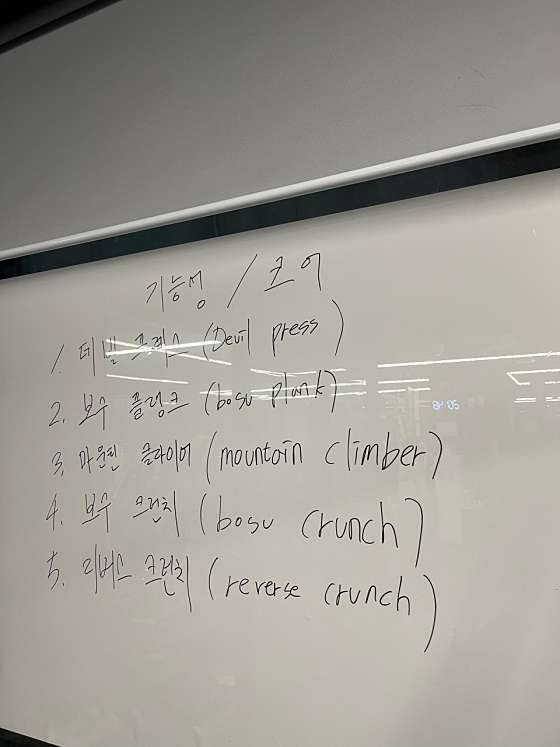 기능성 / 코어
1. 데빌 프레스 (Devil press)
2. 보수 플랭크 (bosu plank)
3. 마운틴 클라이머 (mountain climber)
4. 보수 크런치 (bosu crunch)
5. 리버스 크런치 (reverse crunch)